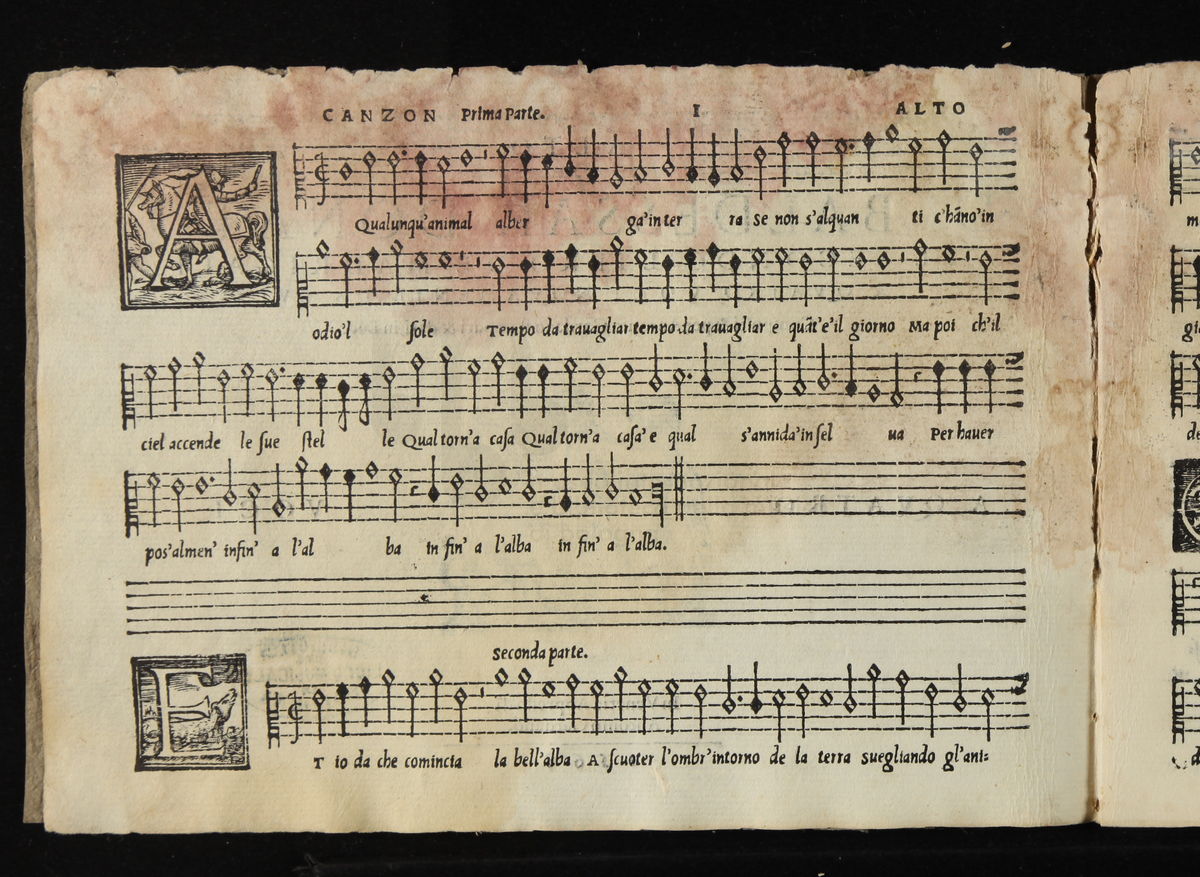 CANZON Prima Parte. I ALTO
A Qualunqu'animal alber ga'in ter ra se non s'alquan ti c'hãno'in
odio'l sole Tempo da trauagliar tempo da trauagliar e quãt'e'il giorno Ma poi ch'il
ciel accende le sue stel le Qual torn'a casa Qual torn'a casa'e qual s'annida'in sel ua Per hauer
pos'almen' infin' a l'al ba in fin' a l'alba in fin' a l'alba.
Seconda parte.
E T io da che comincia la bell'alba A scuoter l'ombr'intorno de la terra suegliando gl'ani=